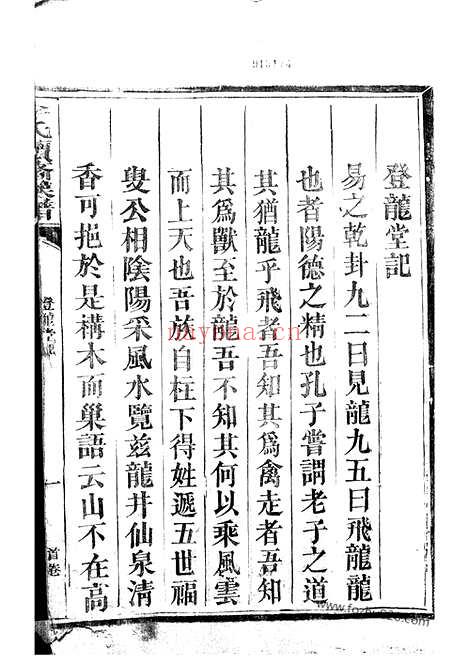 登龍堂記
易之乾卦九二曰見龍九五曰飛龍龍
也者陽德之精也孔子嘗謂老子之道
其猶龍乎飛者吾知其爲禽走者吾知
其爲獸至於龍吾不知其何以乘風雲
而上天也吾首自柱下得姓遞五世福
叟公相陰陽采風水覽茲龍井仙泉清
香可挹於是構木而巢語云山不在高
登龍堂記
一
首卷